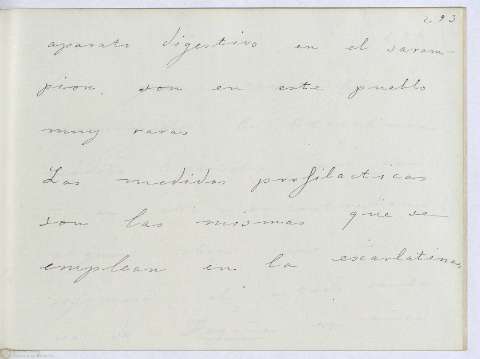 293
aparato digestivo en el saram-
pion. son en este pueblo
muy raras
Las medidas profilacticas
son las mismas que se
emplean en la escarlatina.